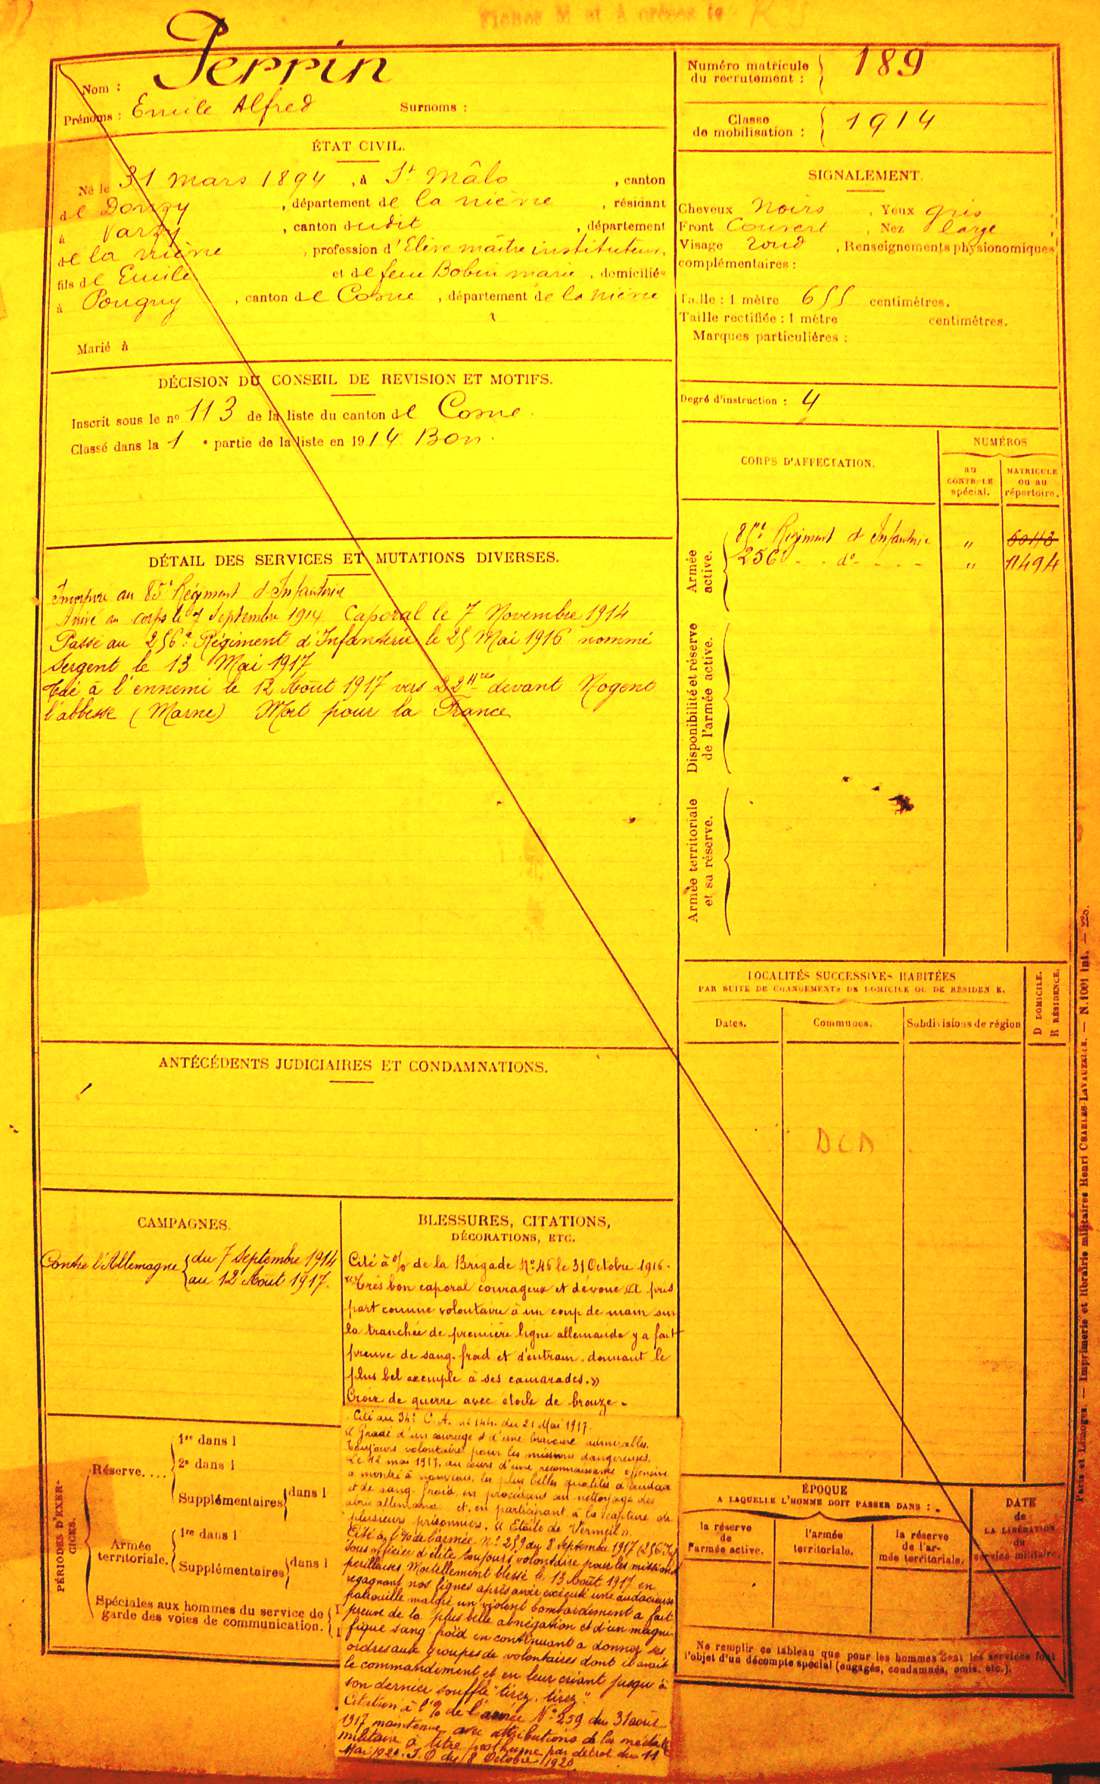 Fiches M et A créées le
Nom : Perrin
Prénoms : Emile Alfred Surnoms :
Numéro matricule
du recrutement : } 189
Classe
de mobilisation : { 1914
ÉTAT CIVIL.
Né le 31 mars 1894, à St Mâlo, canton
de Donzy, département de la nièvre, résidant
à Varzy, canton dudit, département
de la nièvre, profession d'Elève maître instituteur,
fils de Emile et de feue Bobin marie, domiciliés
à Pougny, canton de Cosne, département de la nièvre
Marié à
SIGNALEMENT.
Cheveux noirs, Yeux gris
Front Couvert, Nez large
Visage rond, Renseignements physionomiques
complémentaires :
Taille : 1 mètre 655 centimètres.
Taille rectifiée : 1 mètre centimètres.
Marques particulières :
Degré d'instruction : 4
DÉCISION DU CONSEIL DE REVISION ET MOTIFS.
Inscrit sous le no 113 de la liste du canton de Cosne.
Classé dans la 1e partie de la liste en 1914 Bon.
CORPS D'AFFECTATION.
NUMÉROS
AU CONTROLE spécial.
MATRICULE ou au répertoire.
Armée active.
85e Régiment d'Infanterie „
256e - do - - - - „ 11494
Disponibilité et réserve de l'armée active.
Armée territoriale et sa réserve.
DÉTAIL DES SERVICES ET MUTATIONS DIVERSES.
Incorporé au 85e Régiment d'Infanterie
Arrivé au corps le 7 Septembre 1914 Caporal le 7 Novembre 1914
Passé au 256e Régiment d'Infanterie le 25 Mai 1916 nommé
Sergent le 13 Mai 1917
Tué à l'ennemi le 12 Août 1917 vers 22 Hres devant Nogent
l'abbesse (Marne) Mort pour la France
LOCALITÉS SUCCESSIVES HABITÉES
PAR SUITE DE CHANGEMENTS DE DOMICILE OU DE RÉSIDENCE.
Dates. Communes. Subdivisions de région
D DOMICILE.
R RÉSIDENCE.
DCD
ANTÉCÉDENTS JUDICIAIRES ET CONDAMNATIONS.
CAMPAGNES.
Contre l'Allemagne { du 7 Septembre 1914
au 12 Août 1917.
BLESSURES, CITATIONS,
DÉCORATIONS, ETC.
Cité à l'o/ de la Brigade No 46 le 31 Octobre 1916.
"Très bon caporal courageux et dévoué a pris
part comme volontaire à un coup de main sur
la tranchée de première ligne allemande y a fait
preuve de sang-froid et d'entrain, donnant le
plus bel exemple à ses camarades."
Croix de guerre avec étoile de bronze.
Cité au 34e C. A. no 144 du 21 Mai 1917.
Gradé d'un courage et d'une bravoure admirables.
Toujours volontaire pour les missions dangereuses.
Le mai 1917, au cours d'une reconnaissance offensive
a montré à nouveau les plus belles qualités d'audace
et de sang froid en procédant au nettoyage des
abris allemands et en participant à la capture de
plusieurs prisonniers. Etoile de Vermeil".
Cité à l'o/ de l'armée No 259 du 8 Septembre 1917
Sous officier d'élite toujours volontaire pour les missions
périlleuses. Mortellement blessé le 13 Août 1917 en
regagnant nos lignes après avoir exécuté une audacieuse
patrouille malgré un violent bombardement a fait
preuve de la plus belle abnégation et d'un magni-
fique sang froid en continuant à donner ses
ordres aux groupes de volontaires dont il avait
le commandement et en leur criant jusqu'à
son dernier souffle "tirez, tirez".
Citation à l'o/ de l'armée No 259 du 31 août
1917 maintenue avec attributions de la médaille
militaire à titre posthume par décret du 11
Mai 1920. J.O du 8 Octobre 1920
PÉRIODES D'EXERCICES.
Réserve.... 1re dans l
2e dans l
Supplémentaires dans l
Armée territoriale. 1re dans l
Supplémentaires dans l
Spéciales aux hommes du service de
garde des voies de communication.
ÉPOQUE
A LAQUELLE L'HOMME DOIT PASSER DANS :
la réserve de l'armée active.
l'armée territoriale.
la réserve de l'armée territoriale.
DATE
de
LA LIBÉRATION
du
service militaire.
Ne remplir ce tableau que pour les hommes dont les services font
l'objet d'un décompte spécial (engagés, condamnés, omis, etc.).
Paris et Limoges. — Imprimerie et librairie militaires Henri CHARLES-LAVAUZELLE. — N. 1001 int. — 220.